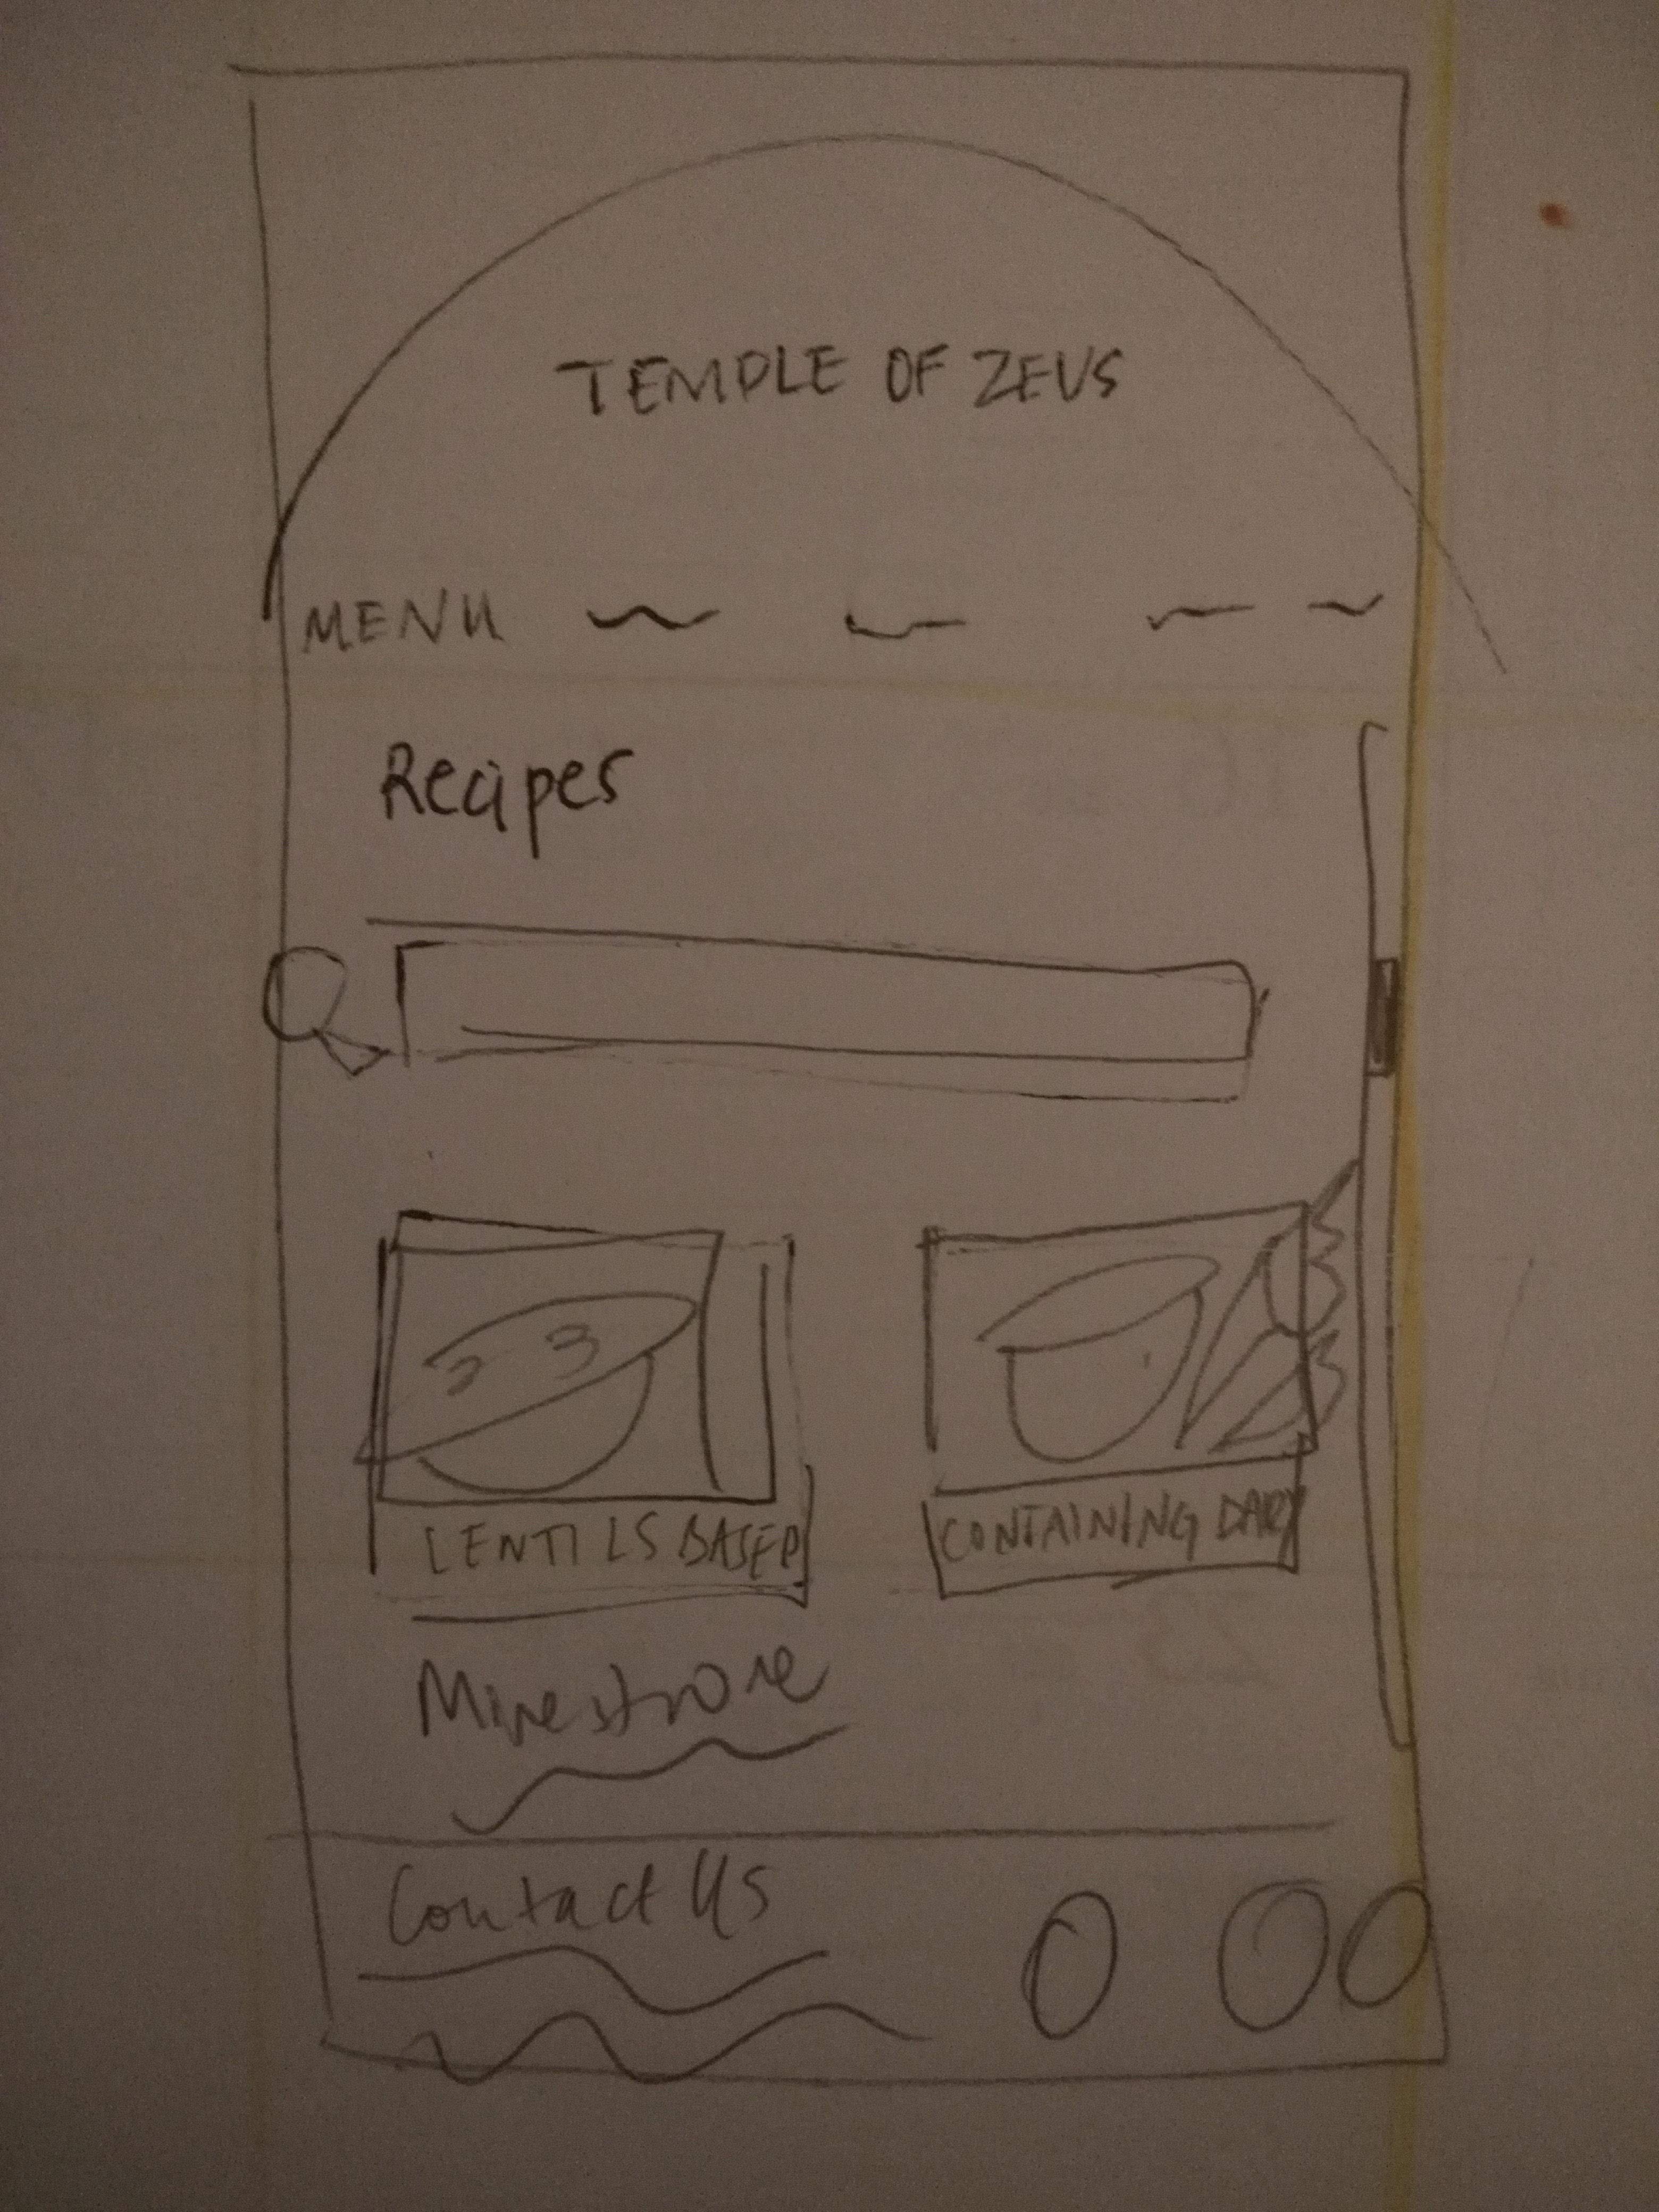 TEMPLE OF ZEUS
MENU
Recipes
LENTILS BASED
CONTAINING DARY
Minestrone
Contact Us